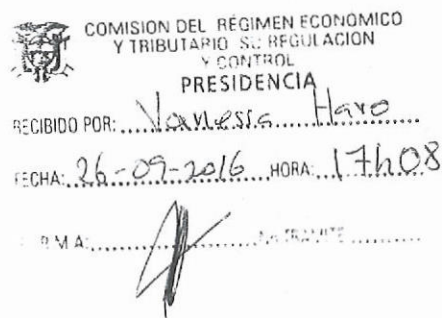 COMISION DEL RÉGIMEN ECONOMICO
Y TRIBUTARIO SU REGULACION
Y CONTROL
PRESIDENCIA
RECIBIDO POR: Vanessa Haro
FECHA: 26-09-2016 HORA: 17h08